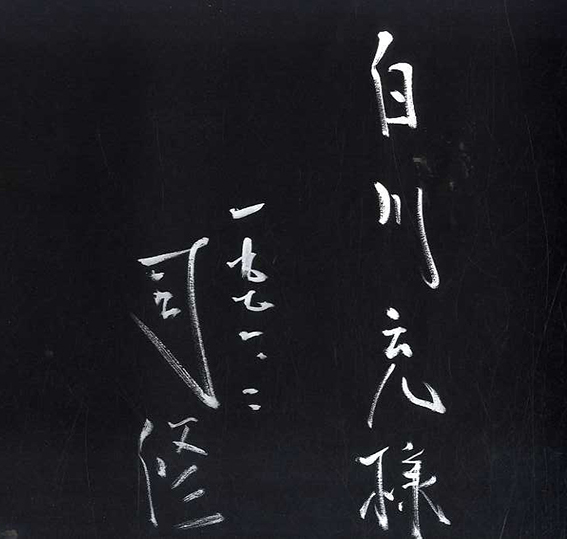 白川充様
一九七一、二
司修